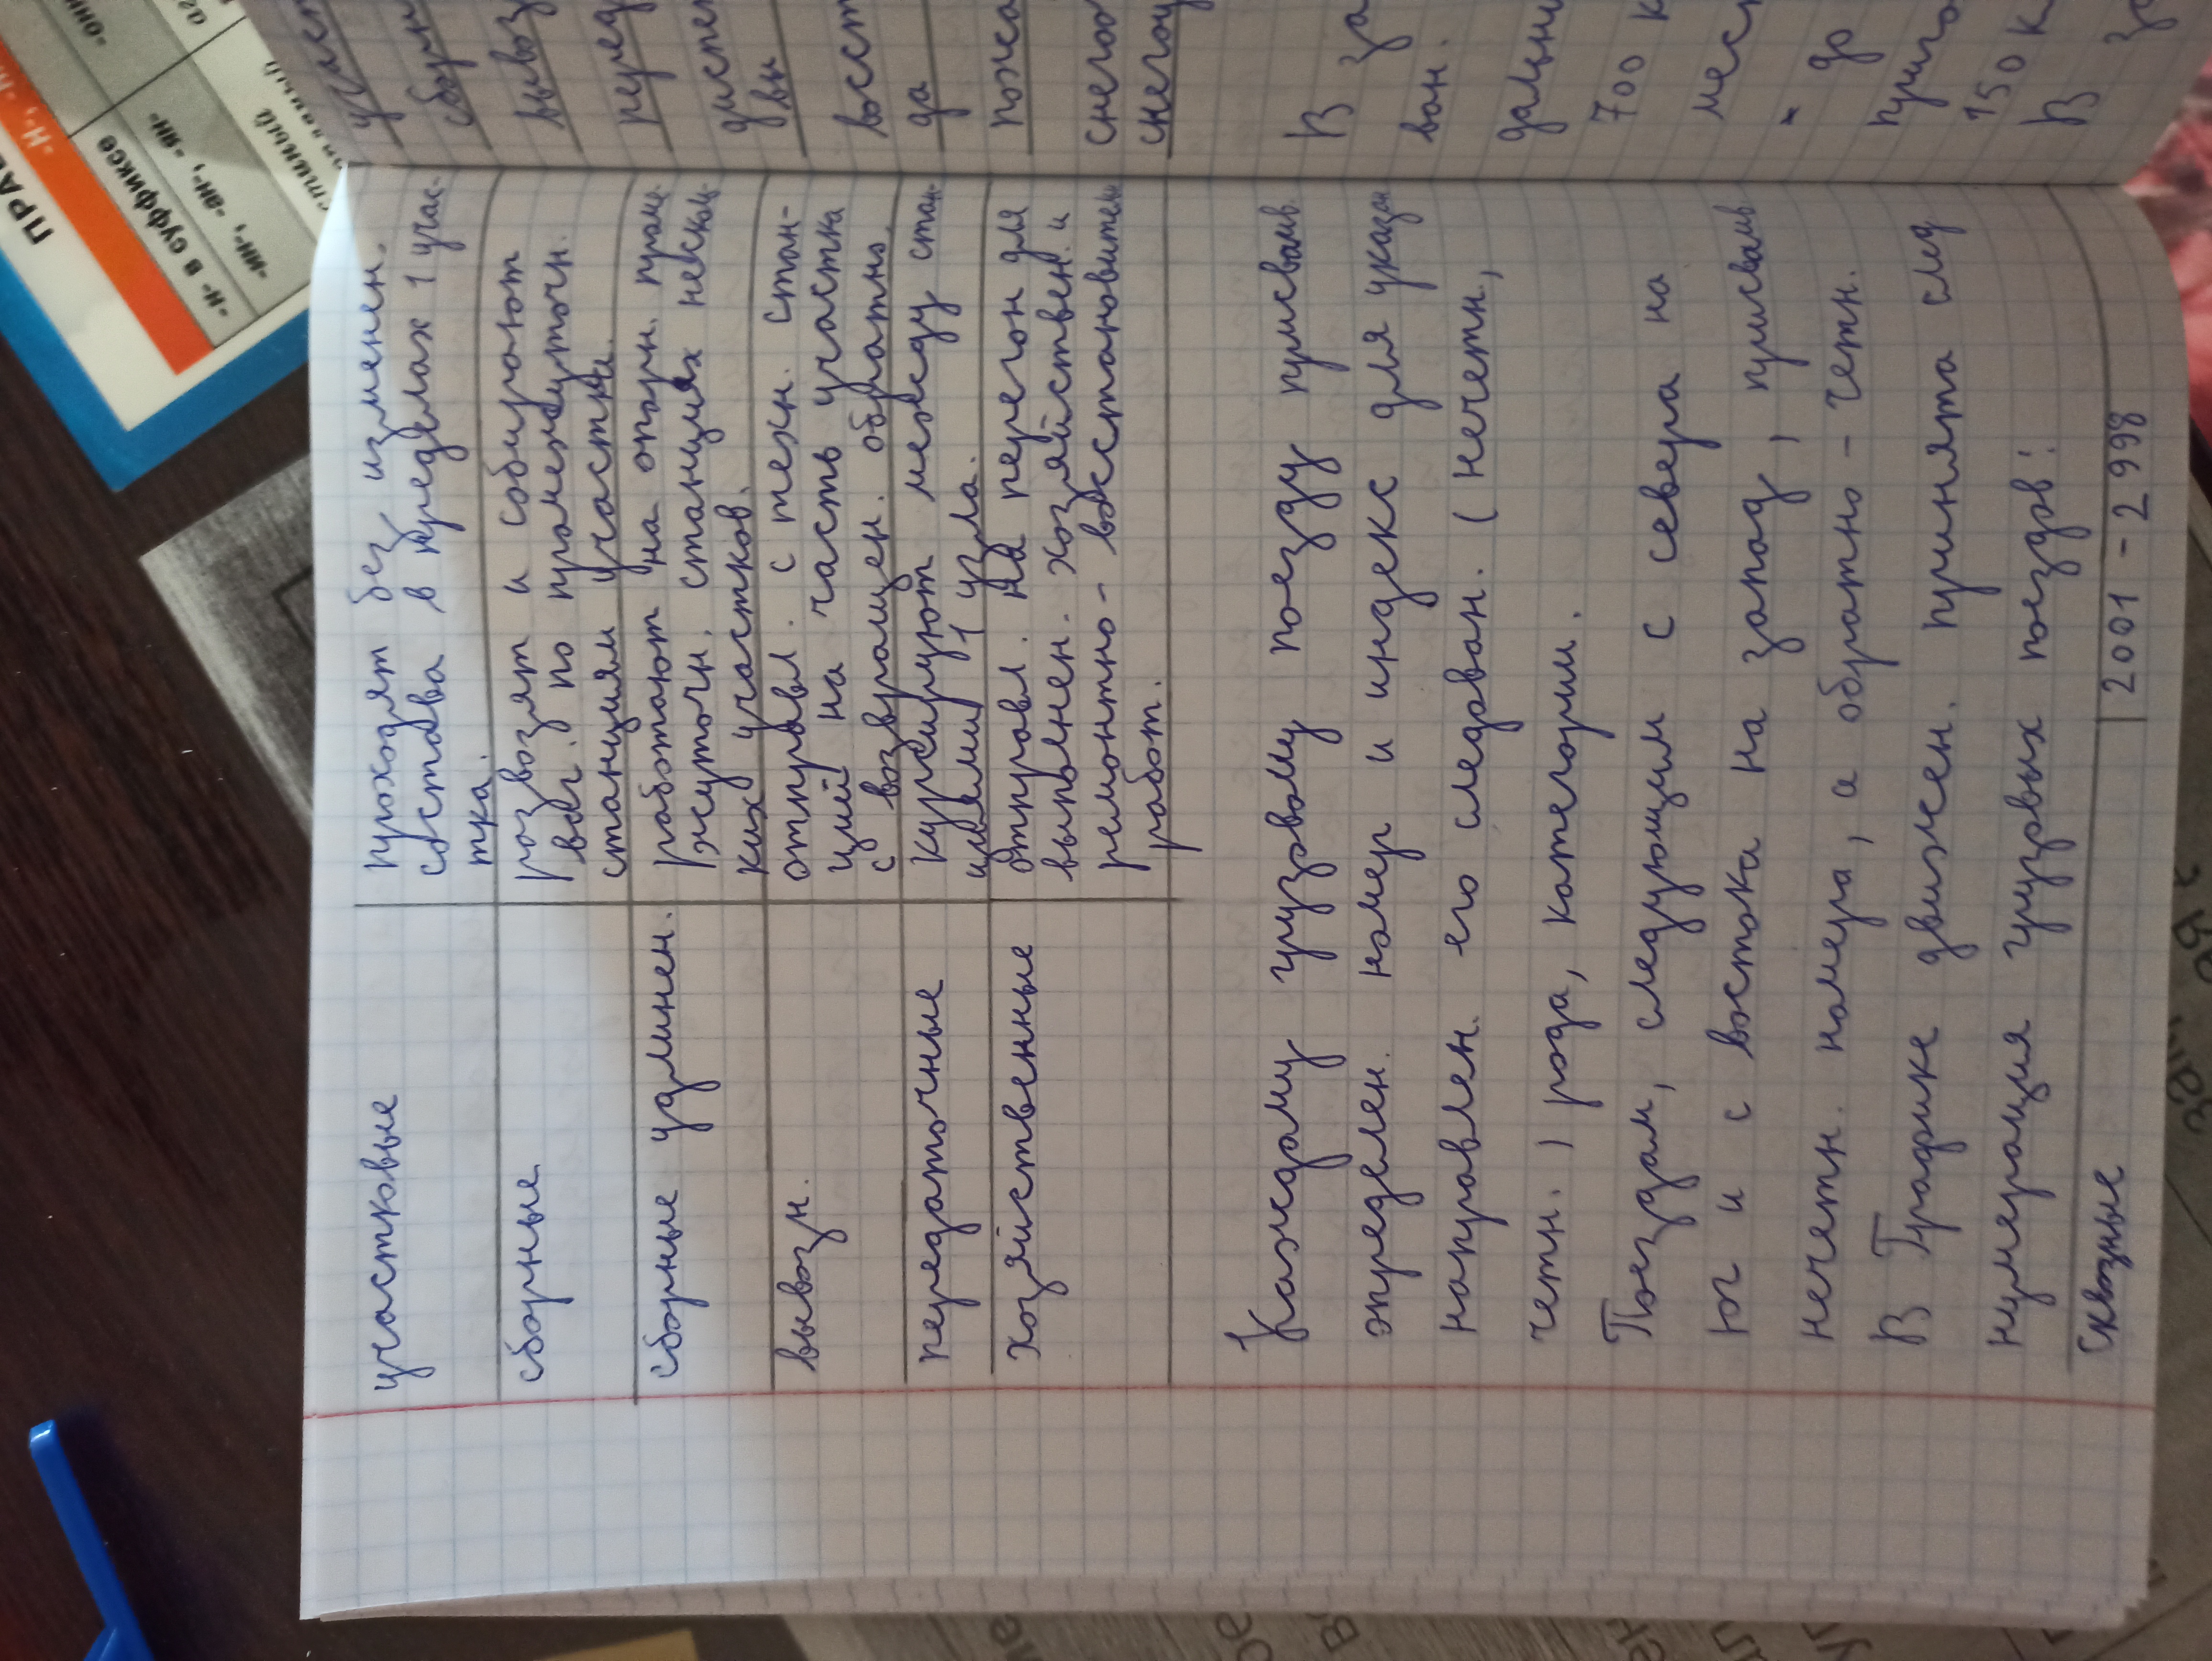 участковые
проходят без изменен.
состава в пределах 1 учас-
тка.
сборные
развозят и собирают
ваг. по промежуточн.
станциям участка.
сборные удлинен.
работают на опорн. пром.
жсуточн. станциях несколь-
ких участков.
вывозн.
отправл. с техн. стан-
ций на часть участка
с возвращен. обратно.
передаточные
курсируют между стан-
циями 1 узла.
хозяйственные
отправл. на перегон для
выполнен. хозяйствен. и
ремонтно-восстановител
работ.
Каждому грузовому поезду присваив.
определен. номер и индекс для указан
направлен. его следован. (нечетн.,
четн.) рода, категории.
Поездам, следующим с севера на
юг и с востока на запад, присваив
нечетн. номера, а обратно - четн.
В Графике движен. принята след
нумерация грузовых поездов:
сквозные 2001 - 2998
участ
сборн
вывоз
перед
диспе
вы
восст
да
пожа
снего
снего
В за
ван.
дальни
700 к
мест
" до
приго
150 к
В за
ПРАВ
-Н-, -Н
-н- в суффиксе
-ин-, -ан-, -ян-